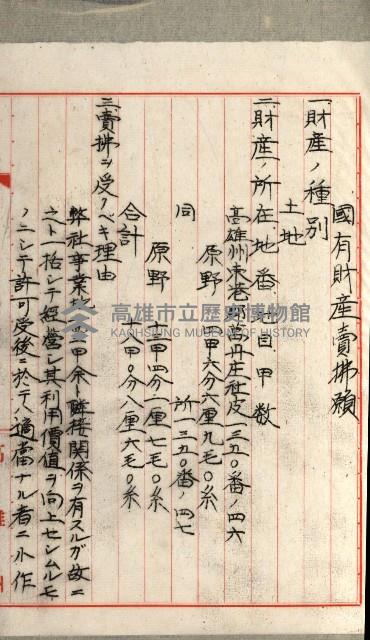 國有財產賣拂願
一、財產ノ種別
土地
二、財產ノ所在地番地目甲數
高雄州東港郡萬丹庄社皮一三五〇番ノ四六
原野 四甲六分六厘九毛〇糸
同 所一三五〇番ノ四七
原野 三甲四分一厘七毛〇糸
合計 八甲〇分八厘六毛〇糸
三、賣拂ヲ受クベキ理由
弊社事業地四甲余ト隣接関係ヲ有スルガ故ニ
之ト一括シテ經營シ其利用價值ヲ向上セシムルモ
ノニシテ許可受後ニ於テハ適當ナル者ニ小作
高雄市立歷史博物館
KAOHSIUNG MUSEUM OF HISTORY